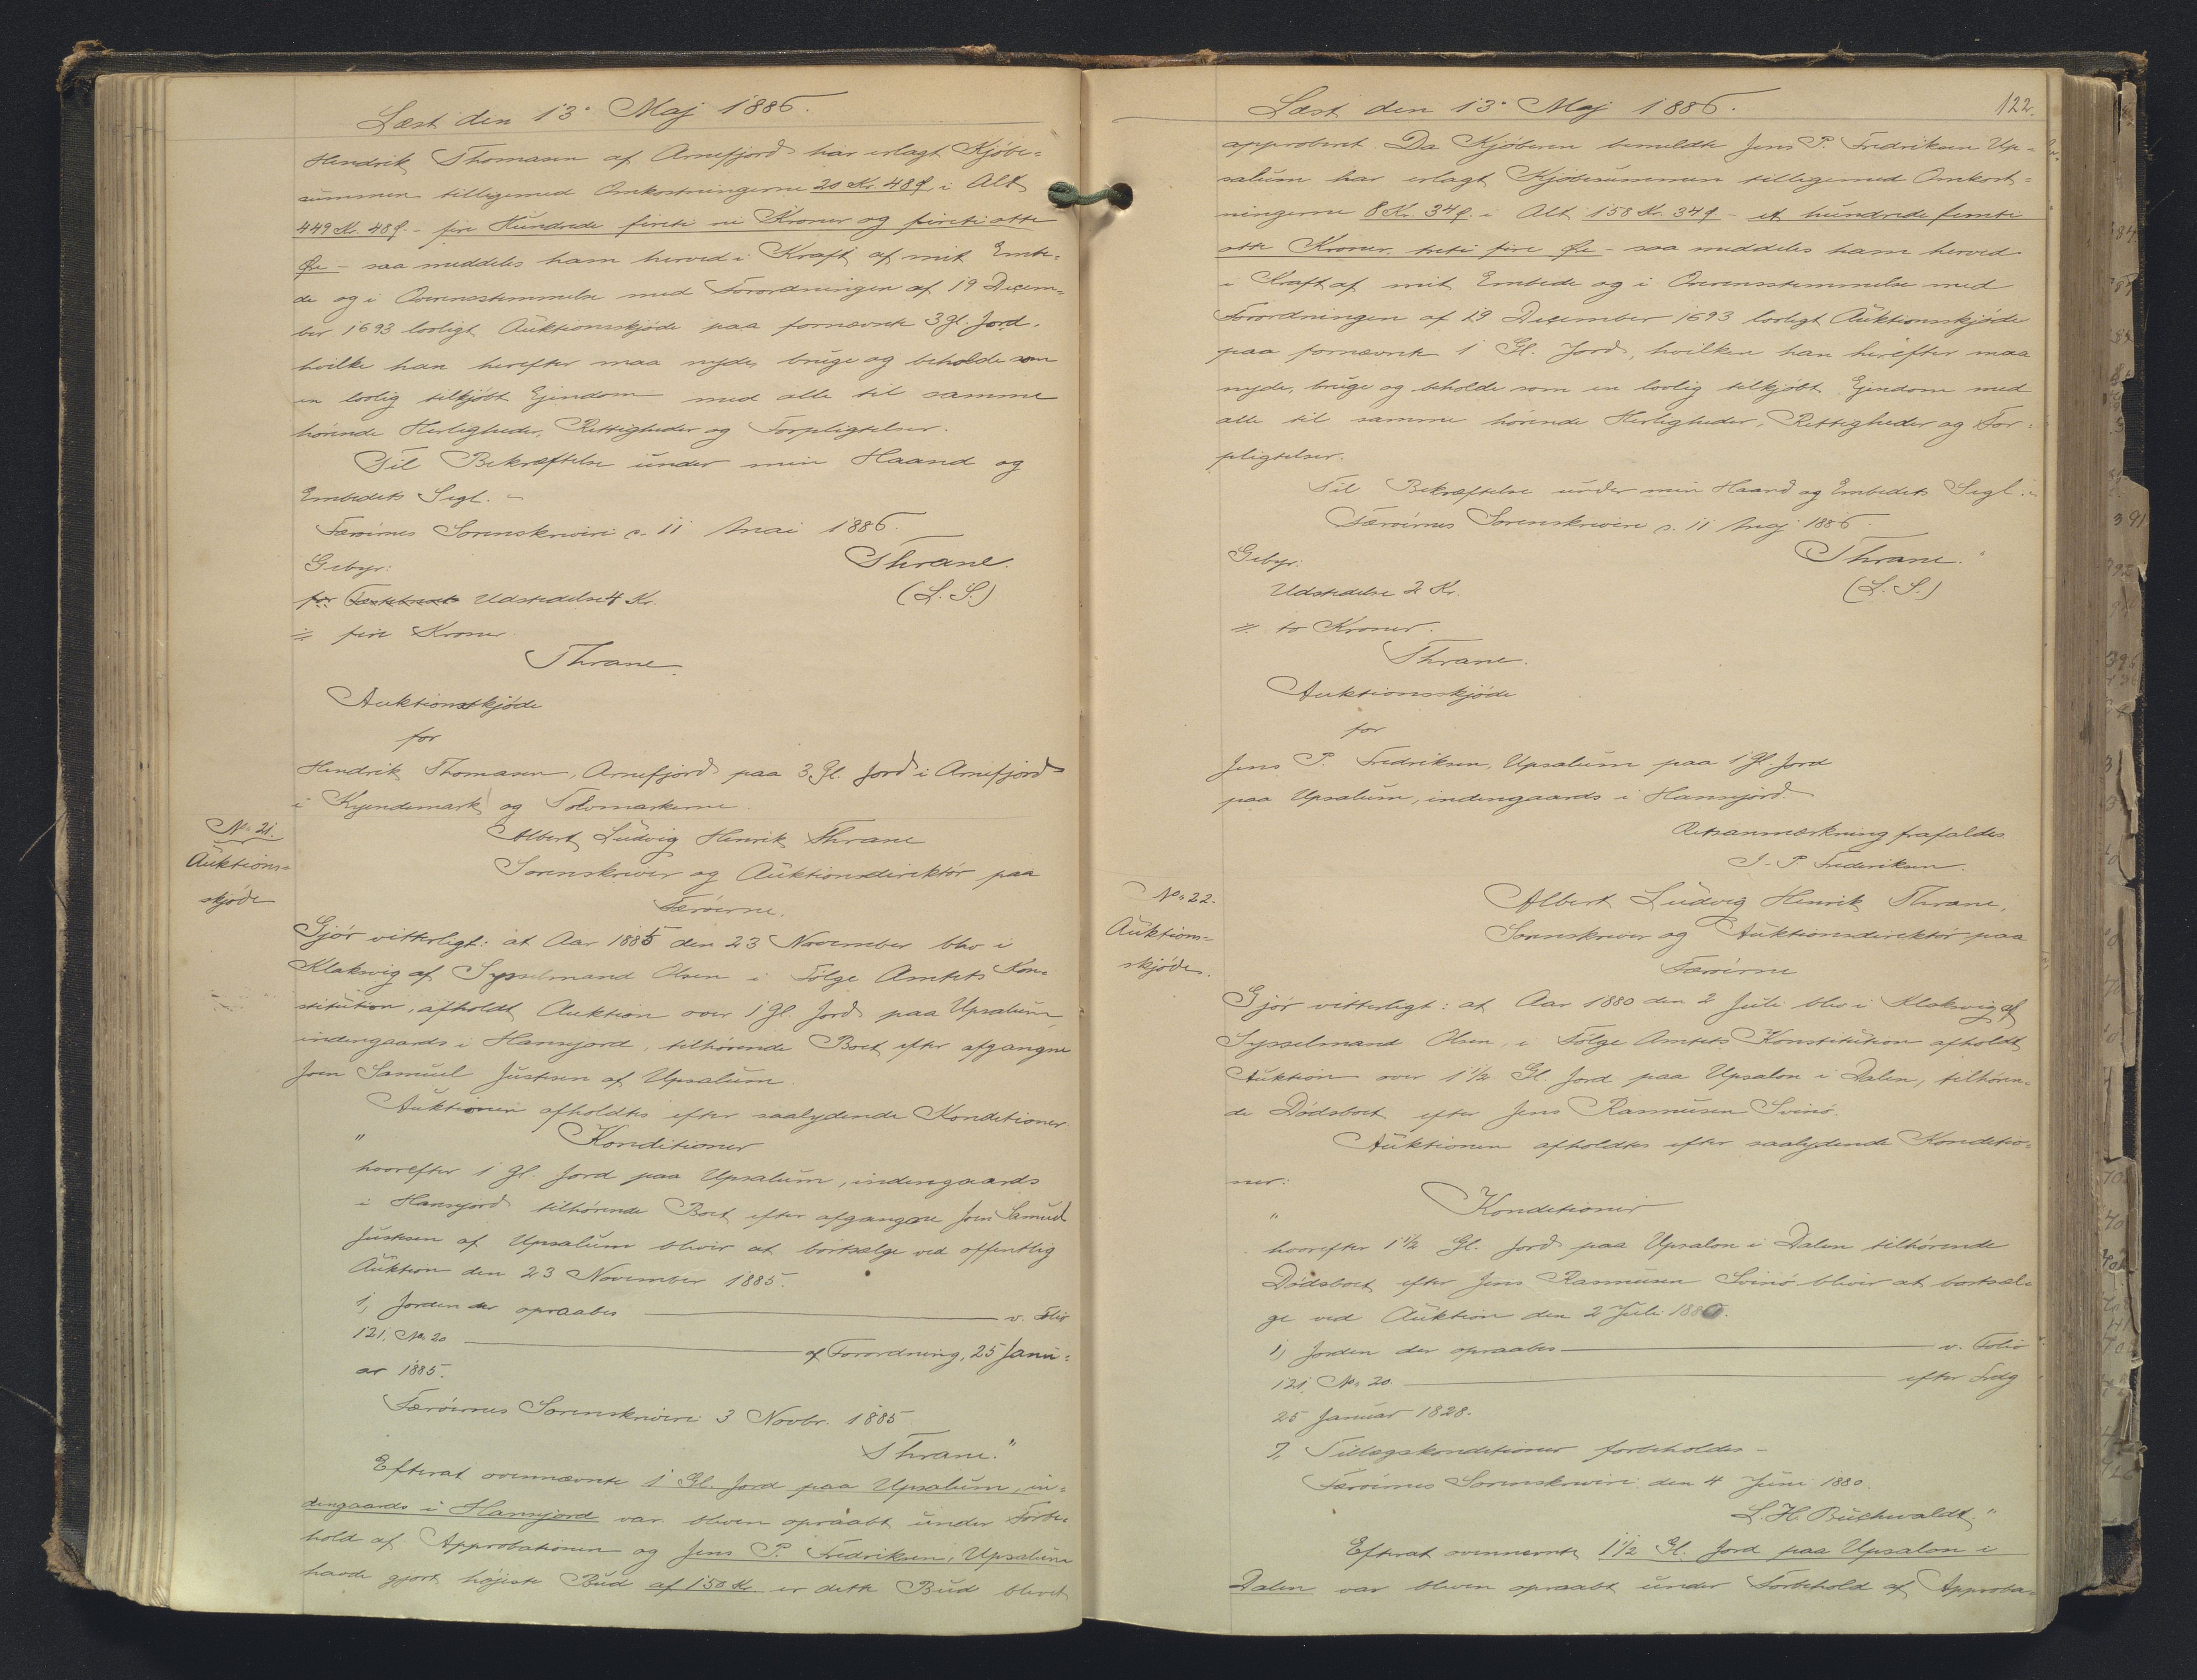 Læst den 13' Maj 1886.
Hendrik Thomasen af Arnefjord har erlagt Kjøbe-
summen tilligemed Omkostningerne 20 Kr. 48 Ø, i Alt
449 Kr. 48 Ø. - fire Hundrede fireti ni Kroner og fireti otte
Øre - saa meddeles ham herved i Kraft af mit Embe-
de og i Overensstemmelse med Forordningen af 19 Decem-
ber 1693 lovligt Auktionsskjøde paa fornævnte 3 Gl. Jord,
hvilke han herefter maa nyde, bruge og beholde som
en lovlig tilkjøbt Ejendom med alle til samme
hørende Herligheder, Rettigheder og Forpligtelser.
Til Bekræftelse under min Haand og
Embedets Segl. -
Færøernes Sorenskriveri d. 11 Mai 1886.
Gebyr: Thrane.
for Udstedelse 4 Kr. (L. S.)
= fire Kroner
Thrane.
Auktionsskjøde
for
Hendrik Thomasen, Arnefjord paa 3 Gl. Jord i Arnefjord
i Kyendemark og Tolvmarkerne.
No 21.
Auktions-
skjøde
Albert Ludvig Henrik Thrane
Sorenskriver og Auktionsdirektør paa
Færøerne.
Gjør vitterligt: at Aar 1885 den 23 November blev i
Klaksvig af Sysselmand Olsen i Følge Amtets Kon-
stitution, afholdt Auktion over 1 Gl. Jord paa Upsalum,
indengaards i Hansjord, tilhørende Boet efter afgangne
Joen Samuel Justsen af Upsalum.
Auktionen afholdtes efter saalydende Konditioner.
" Konditioner
hvorefter 1 Gl. Jord paa Upsalum, indengaards
i Hansjord tilhørende Boet efter afgangne Joen Samuel
Justsen af Upsalum bliver at bortsælge ved offentlig
Auktion den 23 November 1885.
1, Jorden der opraabes — v. Folio
121. No 20 — af Forordning, 25 Janu-
ar 1885.
Færøernes Sorenskriveri 3 Novbr. 1885
Thrane."
Efterat ovennævnte 1 Gl. Jord paa Upsalum, in-
dengaards i Hansjord var bleven opraabt under Forbe-
hold af Approbationen og Jens P. Fredriksen, Upsalum
havde gjort højeste Bud af 150 Kr er dette Bud blevet
Læst den 13' Maj 1886. 122.
approberet. Da Kjøberen bemeldte Jens P. Fredriksen Up-
salum har erlagt Kjøbesummen tilligemed Omkost-
ningerne 8 Kr. 34 Ø. i Alt 158 Kr. 34 Ø - et hundrede femti
otte Kroner treti fire Øre - saa meddeles ham herved
i Kraft af mit Embede og i Overensstemmelse med
Forordningen af 19 December 1693 lovligt Auktionsskjøde
paa fornævnte 1 Gl. Jord, hvilken han herefter maa
nyde, bruge og beholde som en lovlig tilkjøbt Ejendom med
alle til samme hørende Herligheder, Rettigheder og For-
pligtelser.
Til Bekræftelse under min Haand og Embedets Segl. -
Færøernes Sorenskriveri d. 11 Maj 1886.
Gebyr: Thrane.
Udstedelse 2 Kr. (L. S.)
= to Kroner.
Thrane.
Auktionsskjøde
for
Jens P. Fredriksen, Upsalum paa 1 Gl. Jord
paa Upsalum, indengaards i Hansjord.
Retsanmærkning frafaldes
J. P. Frederiksen.
No 22.
Auktions-
skjøde.
Albert Ludvig Henrik Thrane,
Sorenskriver og Auktionsdirektør paa
Færøerne
Gjør vitterligt: at Aar 1880 den 2 Juli blev i Klaksvig af
Sysselmand Olsen, i Følge Amtets Konstitution afholdt
Auktion over 1 1/2 Gl. Jord paa Upsalon i Dalen, tilhøren-
de Dødsboet efter Jens Rasmusen Svinø.
Auktionen afholdtes efter saalydende Konditio-
ner:
" Konditioner
hvorefter 1 1/2 Gl. Jord paa Upsalon i Dalen tilhørende
Dødsboet efter Jens Rasmusen Svinø bliver at bortsæl-
ge ved Auktion den 2 Juli 1880.
1, Jorden der opraabes — v. Folio
121. No 20. — efter Frdg
25 Januar 1828.
7, Tillægskonditioner forbeholdes -
Færøernes Sorenskriveri den 4 Juni 1880.
L. H. Buchwaldt."
Efterat ovennævnte 1 1/2 Gl. Jord paa Upsalon i
Dalen var bleven opraabt under Forbehold af Approba-